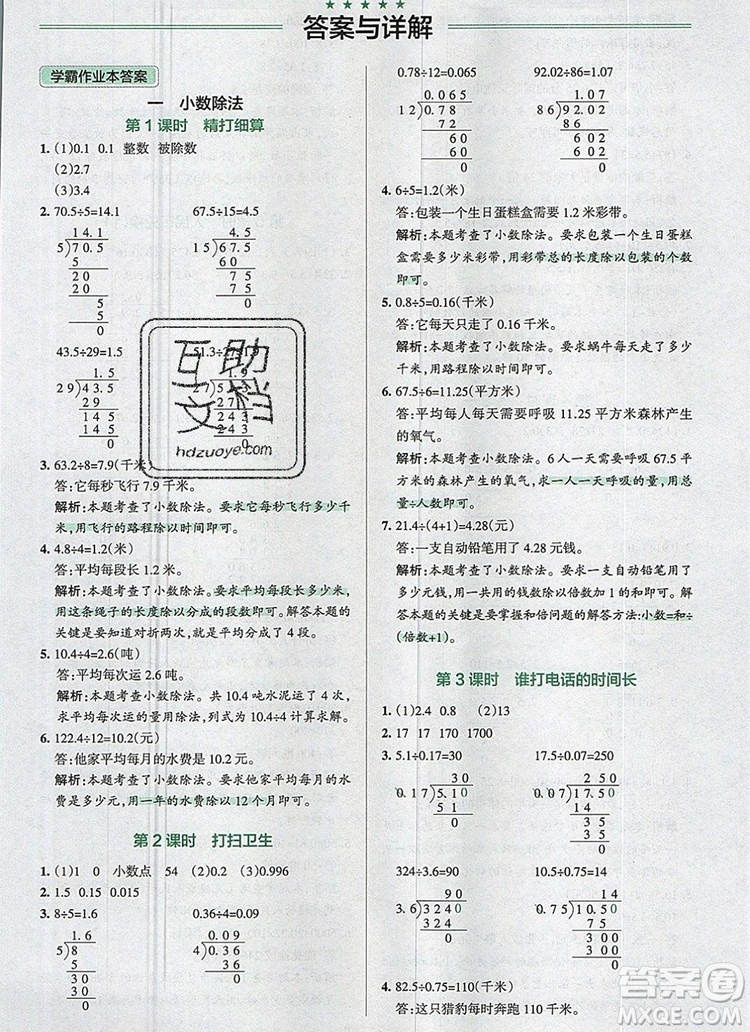 答案与详解
学霸作业本答案
一 小数除法
第1课时 精打细算
1. (1)0.1 0.1 整数 被除数
(2)2.7
(3)3.4
2. 70.5÷5=14.1 67.5÷15=4.5
14.1 4.5
5 70.5 15 67.5
5 60
20 75
20 75
5 0
5
0
43.5÷29=1.5 51.3÷27=1.9
1.5 1.9
29 43.5 27 51.3
29 27
145 243
145 243
0 0
3. 63.2÷8=7.9(千米)
答:它每秒飞行7.9千米。
解析:本题考查了小数除法。要求它每秒飞行多少千
米,用飞行的路程除以时间即可。
4. 4.8÷4=1.2(米)
答:平均每段长1.2米。
解析:本题考查了小数除法。要求平均每段长多少米,
用这条绳子的长度除以分成的段数即可。解答本题的
关键是要知道对折两次,就平均分成了4段。
5. 10.4÷4=2.6(吨)
答:平均每次运2.6吨。
解析:本题考查小数除法。共10.4吨水泥运了4次,求
平均每次运的用除法,列式为10.4÷4计算求解。
6. 122.4÷12=10.2(元)
答:他家平均每月的水费是10.2元。
解析:本题考查了小数除法。要求他家平均每月的水
费是多少元,用一年的水费除以12个月即可。
第2课时 打扫卫生
1. (1)1 0 小数点 54 (2)0.2 (3)0.996
2. 1.5 0.15 0.015
3. 8÷5=1.6 0.36÷4=0.09
1.6 0.09
5 8 4 0.36
5 36
30 0
30
0
0.78÷12=0.065 92.02÷86=1.07
0.065 1.07
12 0.78 86 92.02
72 86
60 602
60 602
0 0
4. 6÷5=1.2(米)
答:包装一个生日蛋糕盒需要1.2米彩带。
解析:本题考查了小数除法。要求包装一个生日蛋糕
盒需要多少米彩带,用彩带总的长度除以包装的个数
即可。
5. 0.8÷5=0.16(千米)
答:它每天只走了0.16千米。
解析:本题考查了小数除法。要求蜗牛每天走了多少
千米,用路程除以时间即可。
6. 67.5÷6=11.25(平方米)
答:平均每人每天需要呼吸11.25平方米森林产生
的氧气。
解析:本题考查了小数除法。6人一天需要呼吸67.5平
方米的森林产生的氧气,求一人一天呼吸的量,用总
量÷人数即可。
7. 21.4÷(4+1)=4.28(元)
答:一支自动铅笔用了4.28元钱。
解析:本题考查了小数除法。要求一支自动铅笔用了
多少元钱,用一共用的钱数除以和的倍数即可。解
答本题的关键是要掌握和倍问题的解答方法:小数=和÷
(倍数+1)。
第3课时 谁打电话的时间长
1. (1)2.4 0.8 (2)13
2. 17 17 170 1700
3. 5.1÷0.17=30 17.5÷0.07=250
30 250
0.17 5.10 0.07 17.50
51 14
0 35
35
0
324÷3.6=90 10.5÷0.75=14
90 14
3.6 3240 0.75 10.50
324 75
0 300
300
0
4. 82.5÷0.75=110(千米)
答:这只猎豹每时奔跑110千米。
互助
文档
hdzuoye.com
答案圈
MXQE.COM